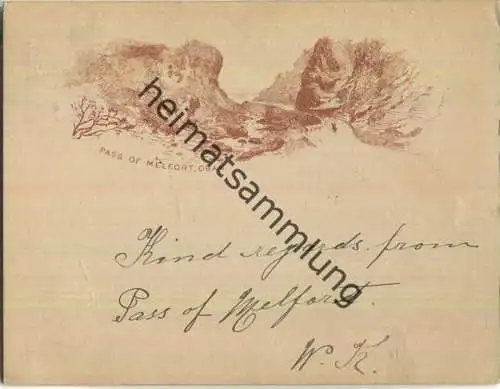 PASS OF MELFORT, OBAN
heimatsammlung
Kind regards from
Pass of Melfort.
W. K.